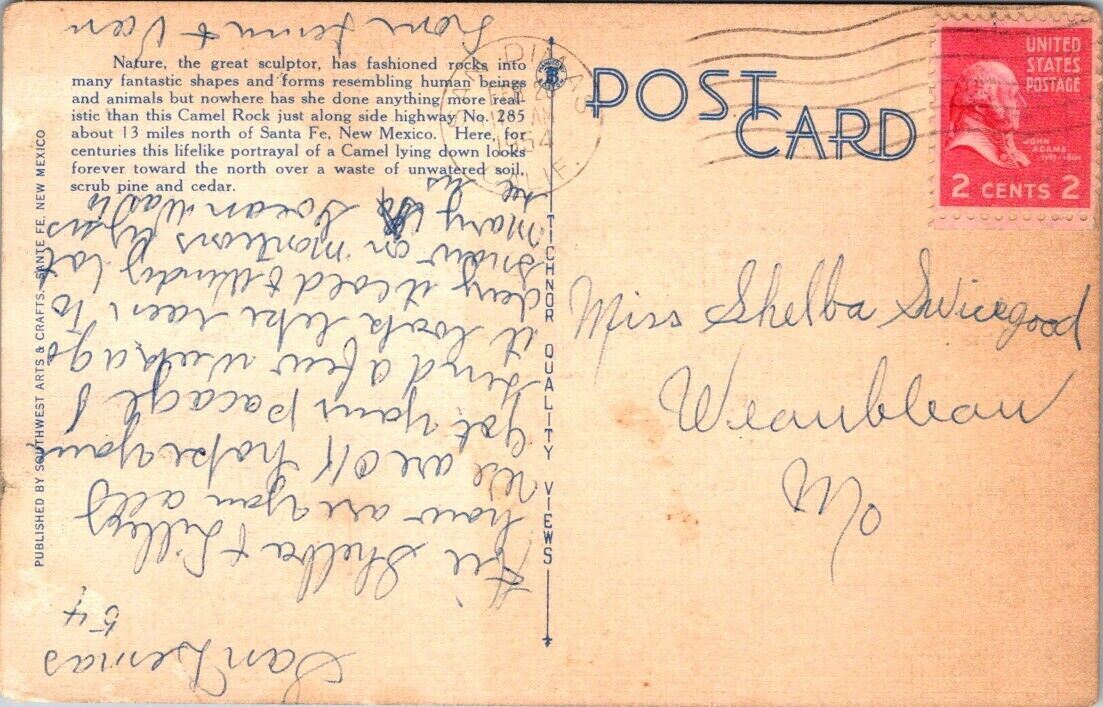 Nature, the great sculptor, has fashioned rocks into
many fantastic shapes and forms resembling human beings
and animals but nowhere has she done anything more real-
istic than this Camel Rock just along side highway No. 285
about 13 miles north of Santa Fe, New Mexico. Here, for
centuries this lifelike portrayal of a Camel lying down looks
forever toward the north over a waste of unwatered soil,
scrub pine and cedar.
PUBLISHED BY SOUTHWEST ARTS & CRAFTS, SANTE FE, NEW MEXICO
TICHNOR QUALITY VIEWS
POST CARD
SAN DIMAS
1954
CALIF.
UNITED
STATES
POSTAGE
JOHN
ADAMS
1797-1801
2 CENTS 2
Miss Shelba Swicegood
Weaubleau
Mo
San Demas
54
Hi Shelba &
how are you all
We are OK hope you
got your pacage I
send a few weeks ago
it look like raen to
day it cold & windy lat
snow on
Mary
see us
from & Van